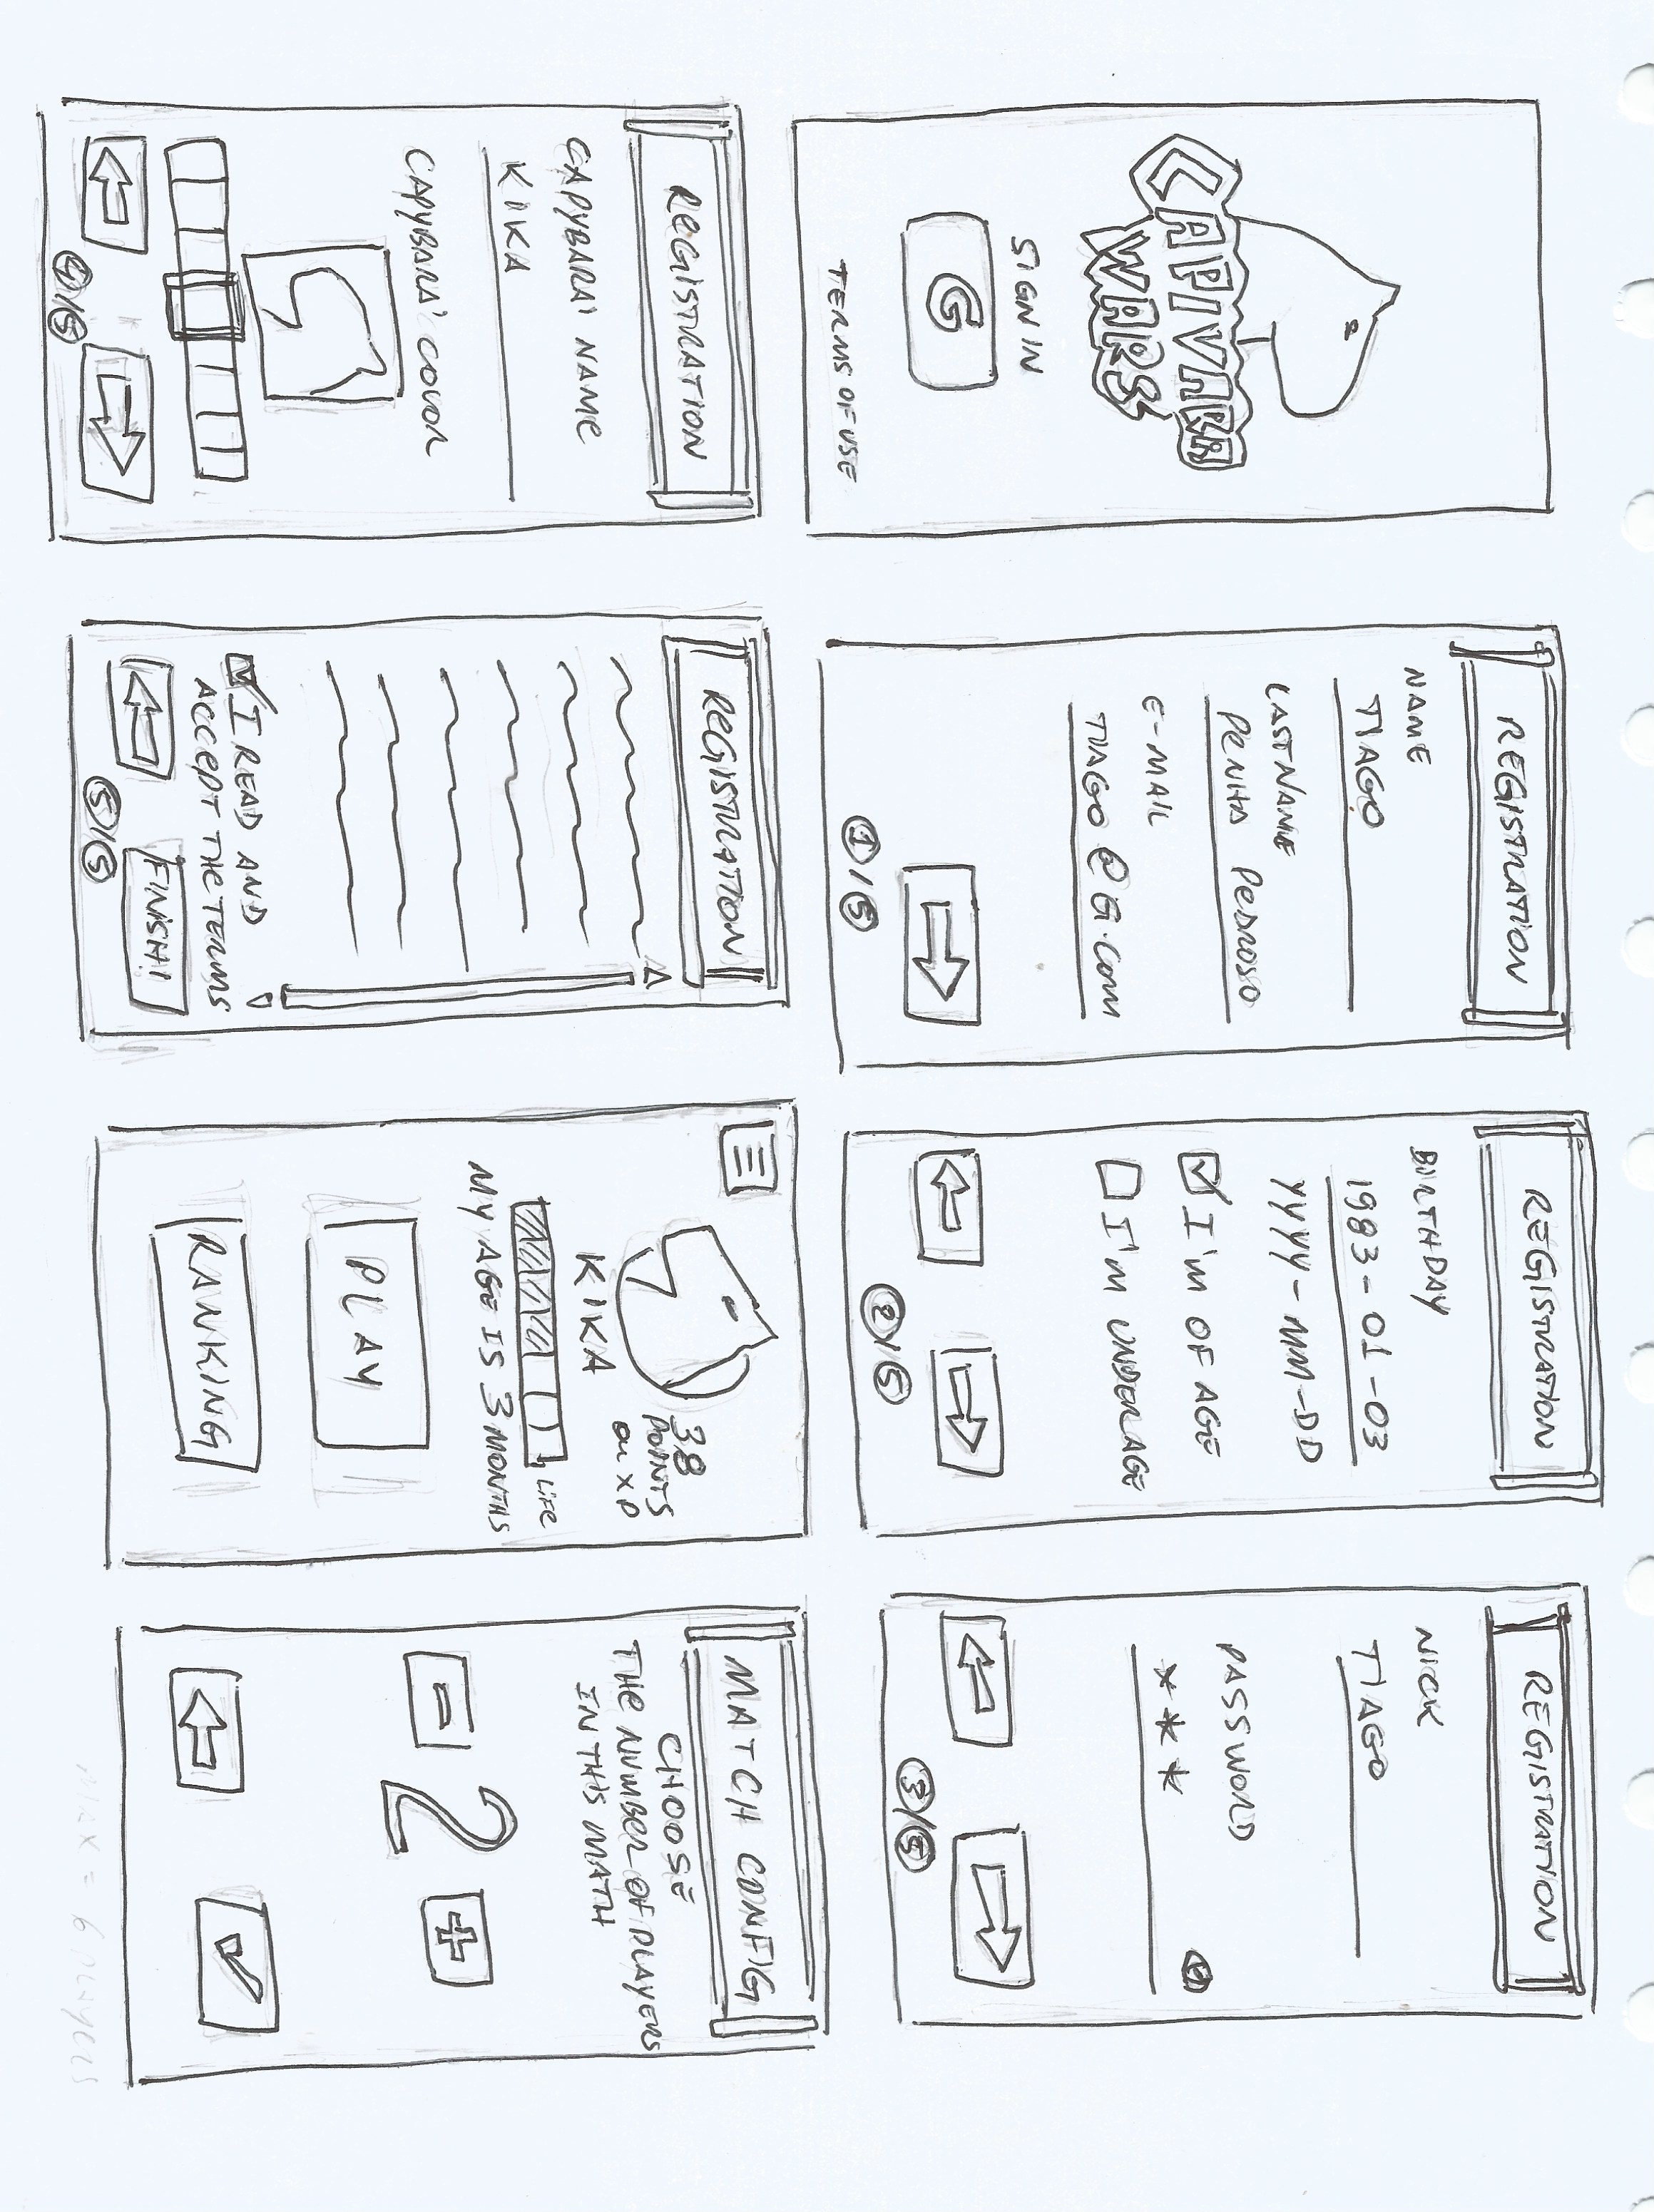 CAPIVARA
WARS
SIGN IN
G
TERMS OF USE
REGISTRATION
NAME
TIAGO
LASTNAME
PENHA PEDROSO
E-MAIL
TIAGO @ G.COM
1/5
REGISTRATION
BIRTHDAY
1983-01-03
YYYY-MM-DD
I'M OF AGE
I'M UNDER AGE
2/5
REGISTRATION
NICK
TIAGO
PASSWORD
***
3/5
REGISTRATION
CAPYBARA' NAME
KIKA
CAPYBARA' COLOR
4/5
REGISTRATION
I READ AND
ACCEPT THE TERMS
FINISH!
5/5
38
POINTS
OU XP
KIKA
LIFE
MY AGE IS 3 MONTHS
PLAY
RANKING
MATCH CONFIG
CHOOSE
THE NUMBER OF PLAYERS
IN THIS MATH
- 2 +
MAX = 6 PLAYERS